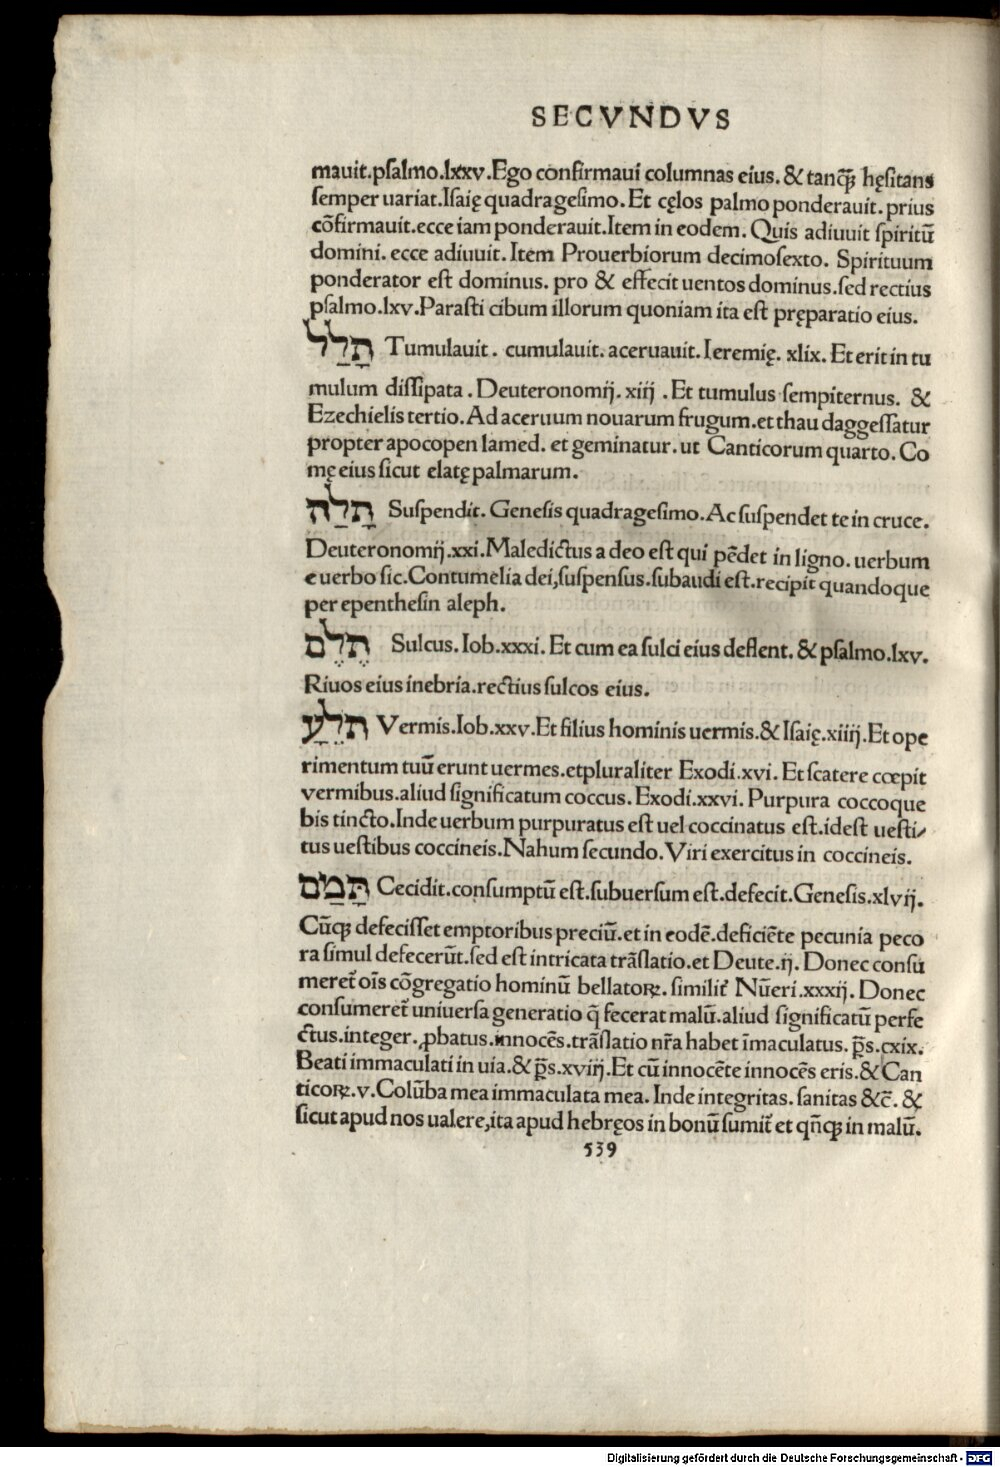 SECVNDVS
mauit.psalmo.lxxv.Ego confirmaui columnas eius. & tanq̃ȝ hęsitans
semper uariat.Isaię quadragesimo.Et cęlos palmo ponderauit. prius
cõfirmauit.ecce iam ponderauit.Item in eodem. Quis adiuuit spiritũ
domini. ecce adiuuit. Item Prouerbiorum decimosexto. Spirituum
ponderator est dominus. pro & effecit uentos dominus.sed rectius
psalmo.lxv.Parasti cibum illorum quoniam ita est pręparatio eius.
תָלַל Tumulauit. cumulauit. aceruauit. Ieremię. xlix. Et erit in tu
mulum dissipata. Deuteronomij. xiij. Et tumulus sempiternus. &
Ezechielis tertio. Ad aceruum nouarum frugum.et thau daggessatur
propter apocopen lamed. et geminatur. ut Canticorum quarto. Co
mę eius sicut elatę palmarum.
תָלַה Suspendit. Genesis quadragesimo. Ac suspendet te in cruce.
Deuteronomij.xxi.Maledictus a deo est qui pẽdet in ligno. uerbum
e uerbo sic.Contumelia dei,suspensus.subaudi est.recipit quandoque
per epenthesin aleph.
תֶלֶם Sulcus. Iob.xxxi. Et cum ea sulci eius deflent. & psalmo.lxv.
Riuos eius inebria.rectius sulcos eius.
תֹלֵעָ Vermis.Iob.xxv.Et filius hominis uermis.& Isaię.xiiij.Et ope
rimentum tuũ erunt uermes.et pluraliter Exodi.xvi. Et scatere cœpit
vermibus.aliud significatum coccus. Exodi.xxvi. Purpura coccoque
bis tincto.Inde uerbum purpuratus est uel coccinatus est.idest uesti/
tus uestibus coccineis.Nahum secundo.Viri exercitus in coccineis.
תָּמַם Cecidit.consumptũ est.subuersum est.defecit.Genesis.xlvij.
Cũqȝ defecisset emptoribus preciũ.et in eodẽ.deficiẽte pecunia peco
ra simul defecerũt.sed est intricata trãslatio.et Deute.ij. Donec consu
meret᷑ oĩs cõgregatio hominũ bellatoꝝ. similit᷑ Nũeri.xxxij. Donec
consumeret᷑ uniuersa generatio q̃ fecerat malũ.aliud significatũ perfe
ctus.integer.ꝓbatus.innocẽs.trãslatio nr̃a habet ĩmaculatus. p̃s.cxix.
Beati immaculati in uia.& p̃s.xviij.Et cũ innocẽte innocẽs eris.& Can
ticoꝝ.v.Colũba mea immaculata mea. Inde integritas. sanitas &c̃. &
sicut apud nos ualere,ita apud hebręos in bonũ sumit᷑ et qñqȝ in malũ.
539
Digitalisierung gefördert durch die Deutsche Forschungsgemeinschaft - DFG